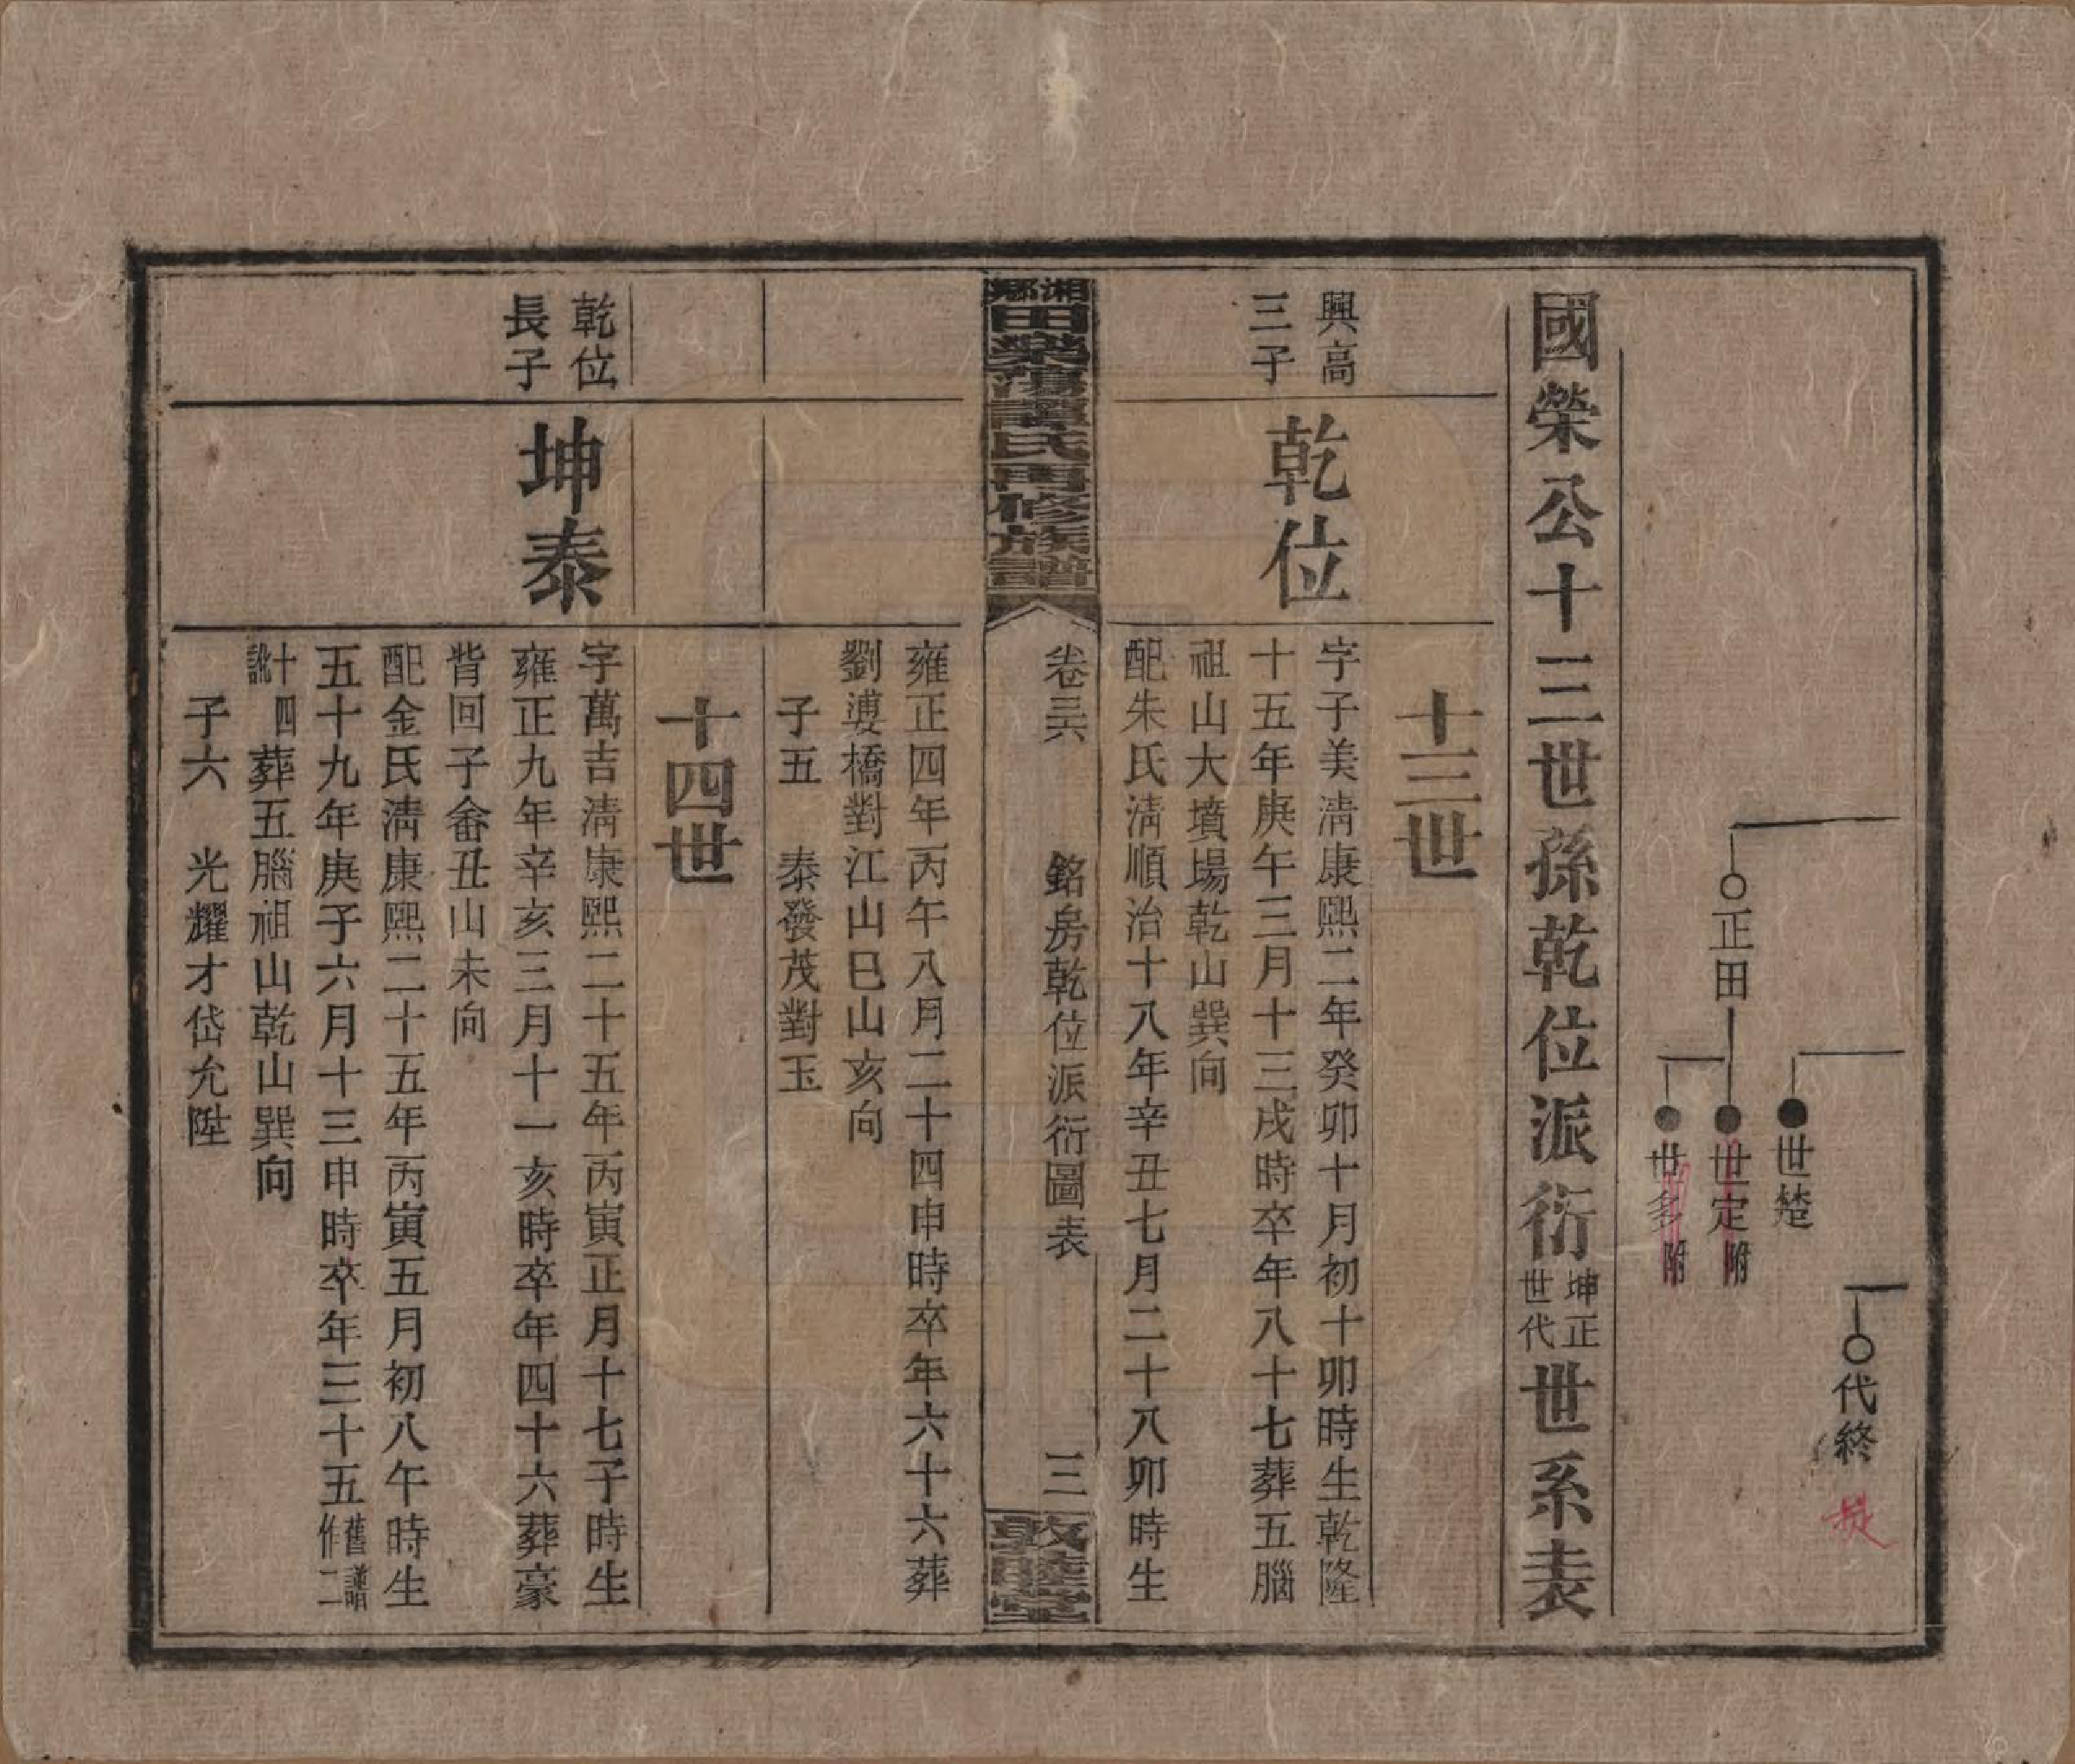 代終
世楚
正田
世定 附
世多 附
國榮公十三世孫乾位派衍坤正世代世系表
十三世
興高三子
乾位
字子美淸康熙二年癸卯十月初十卯時生乾隆
十五年庚午三月十三戌時卒年八十七葬五腦
祖山大墳場乾山巽向
配朱氏淸順治十八年辛丑七月二十八卯時生
湘鄉田榮蕩譚氏再修族譜
卷三六 銘房乾位派衍圖表 三
敦睦堂
雍正四年丙午八月二十四申時卒年六十六葬
劉婆橋對江山巳山亥向
子五 泰發茂對玉
十四世
乾位長子
坤泰
字萬吉淸康熙二十五年丙寅正月十七子時生
雍正九年辛亥三月十一亥時卒年四十六葬豪
背回子畬丑山未向
配金氏淸康熙二十五年丙寅五月初八午時生
五十九年庚子六月十三申時卒年三十五舊譜作二
十四訛葬五腦祖山乾山巽向
子六 光耀才岱允陞